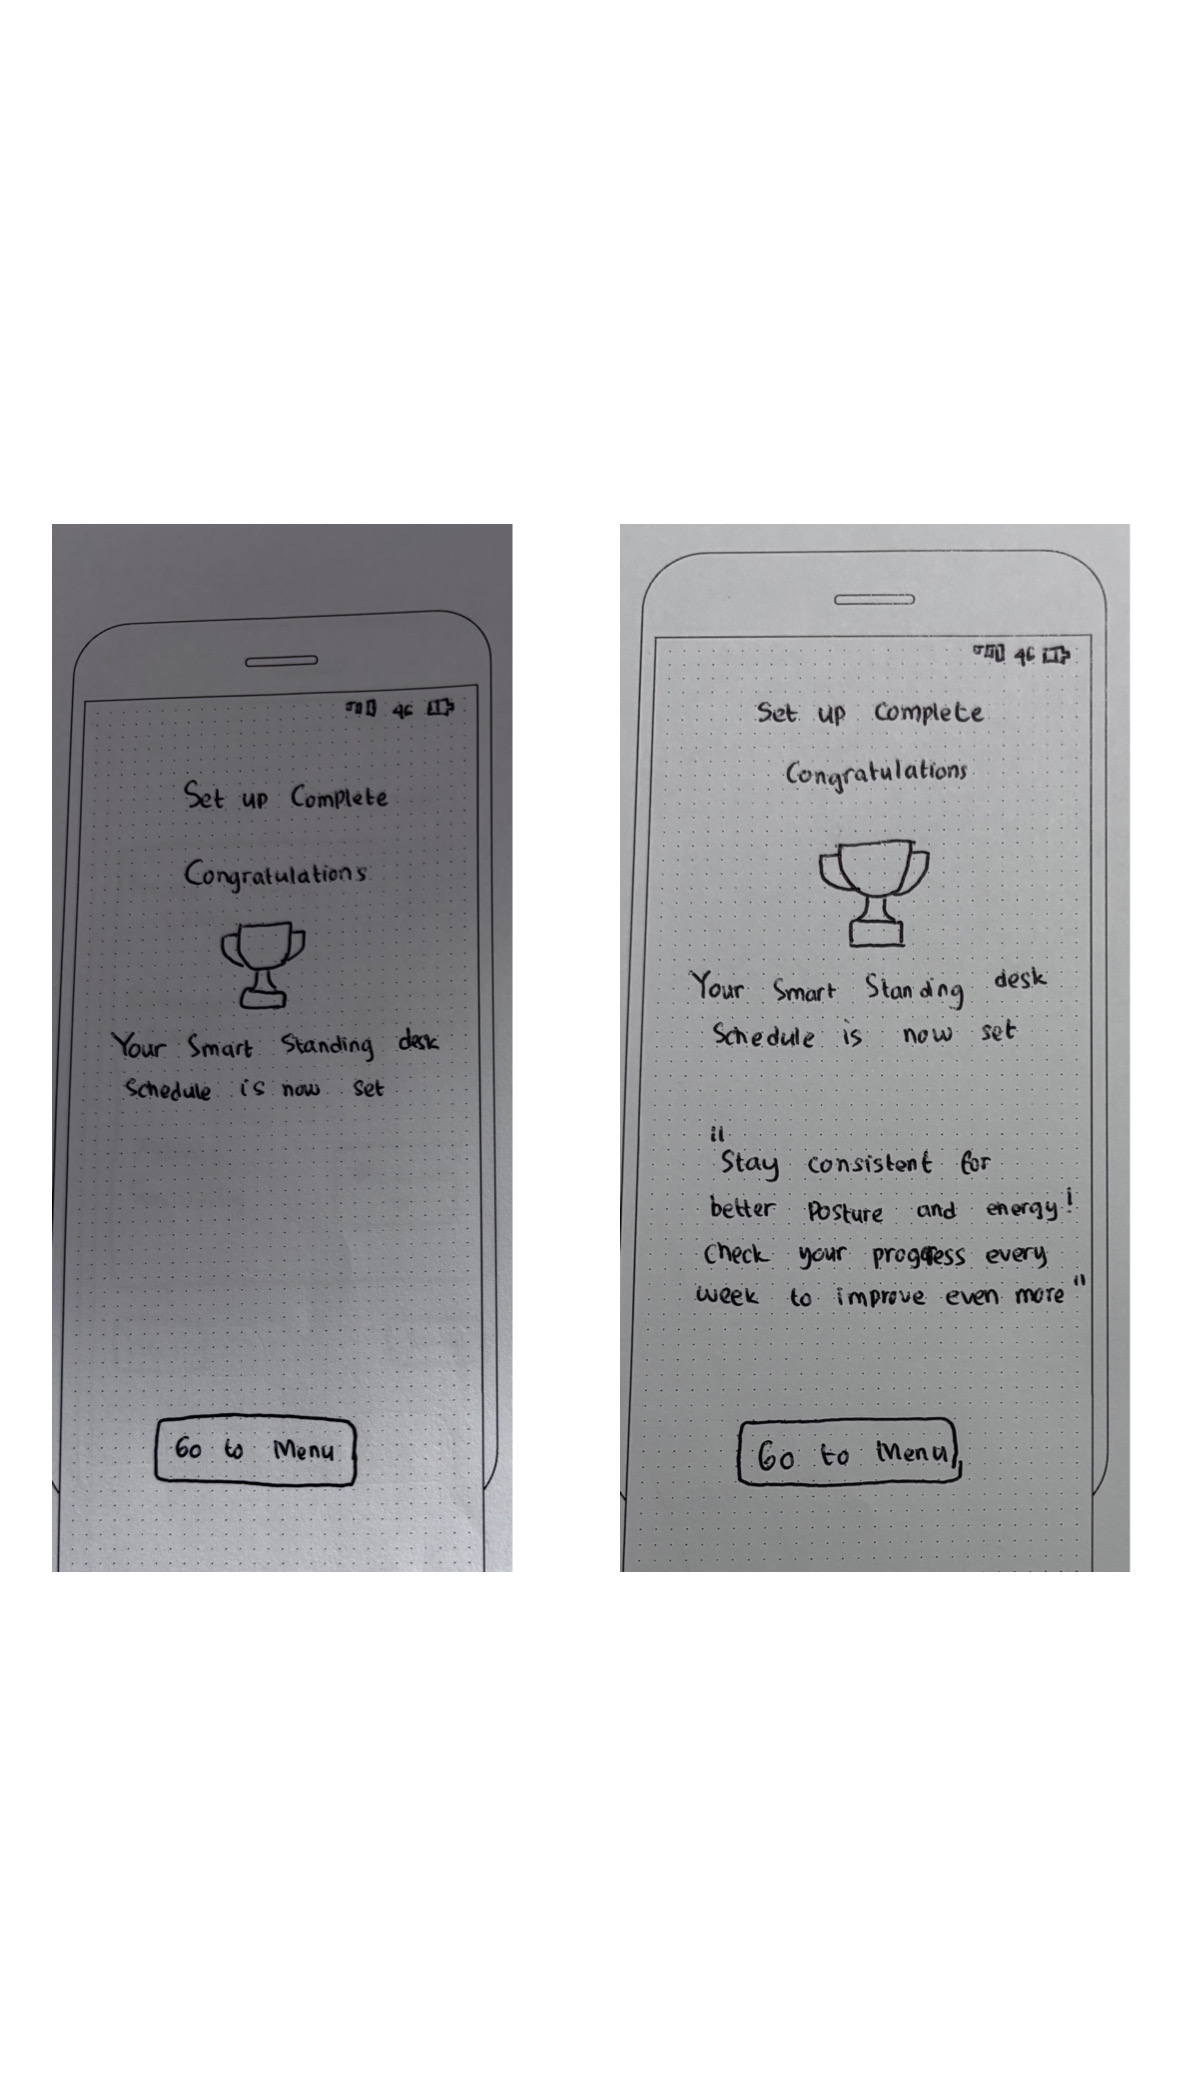 4G
Set up Complete
Congratulations
Your Smart Standing desk
Schedule is now set
Go to Menu
4G
Set up Complete
Congratulations
Your Smart Standing desk
Schedule is now set
"Stay consistent for
better Posture and energy!
Check your progress every
week to improve even more"
Go to Menu